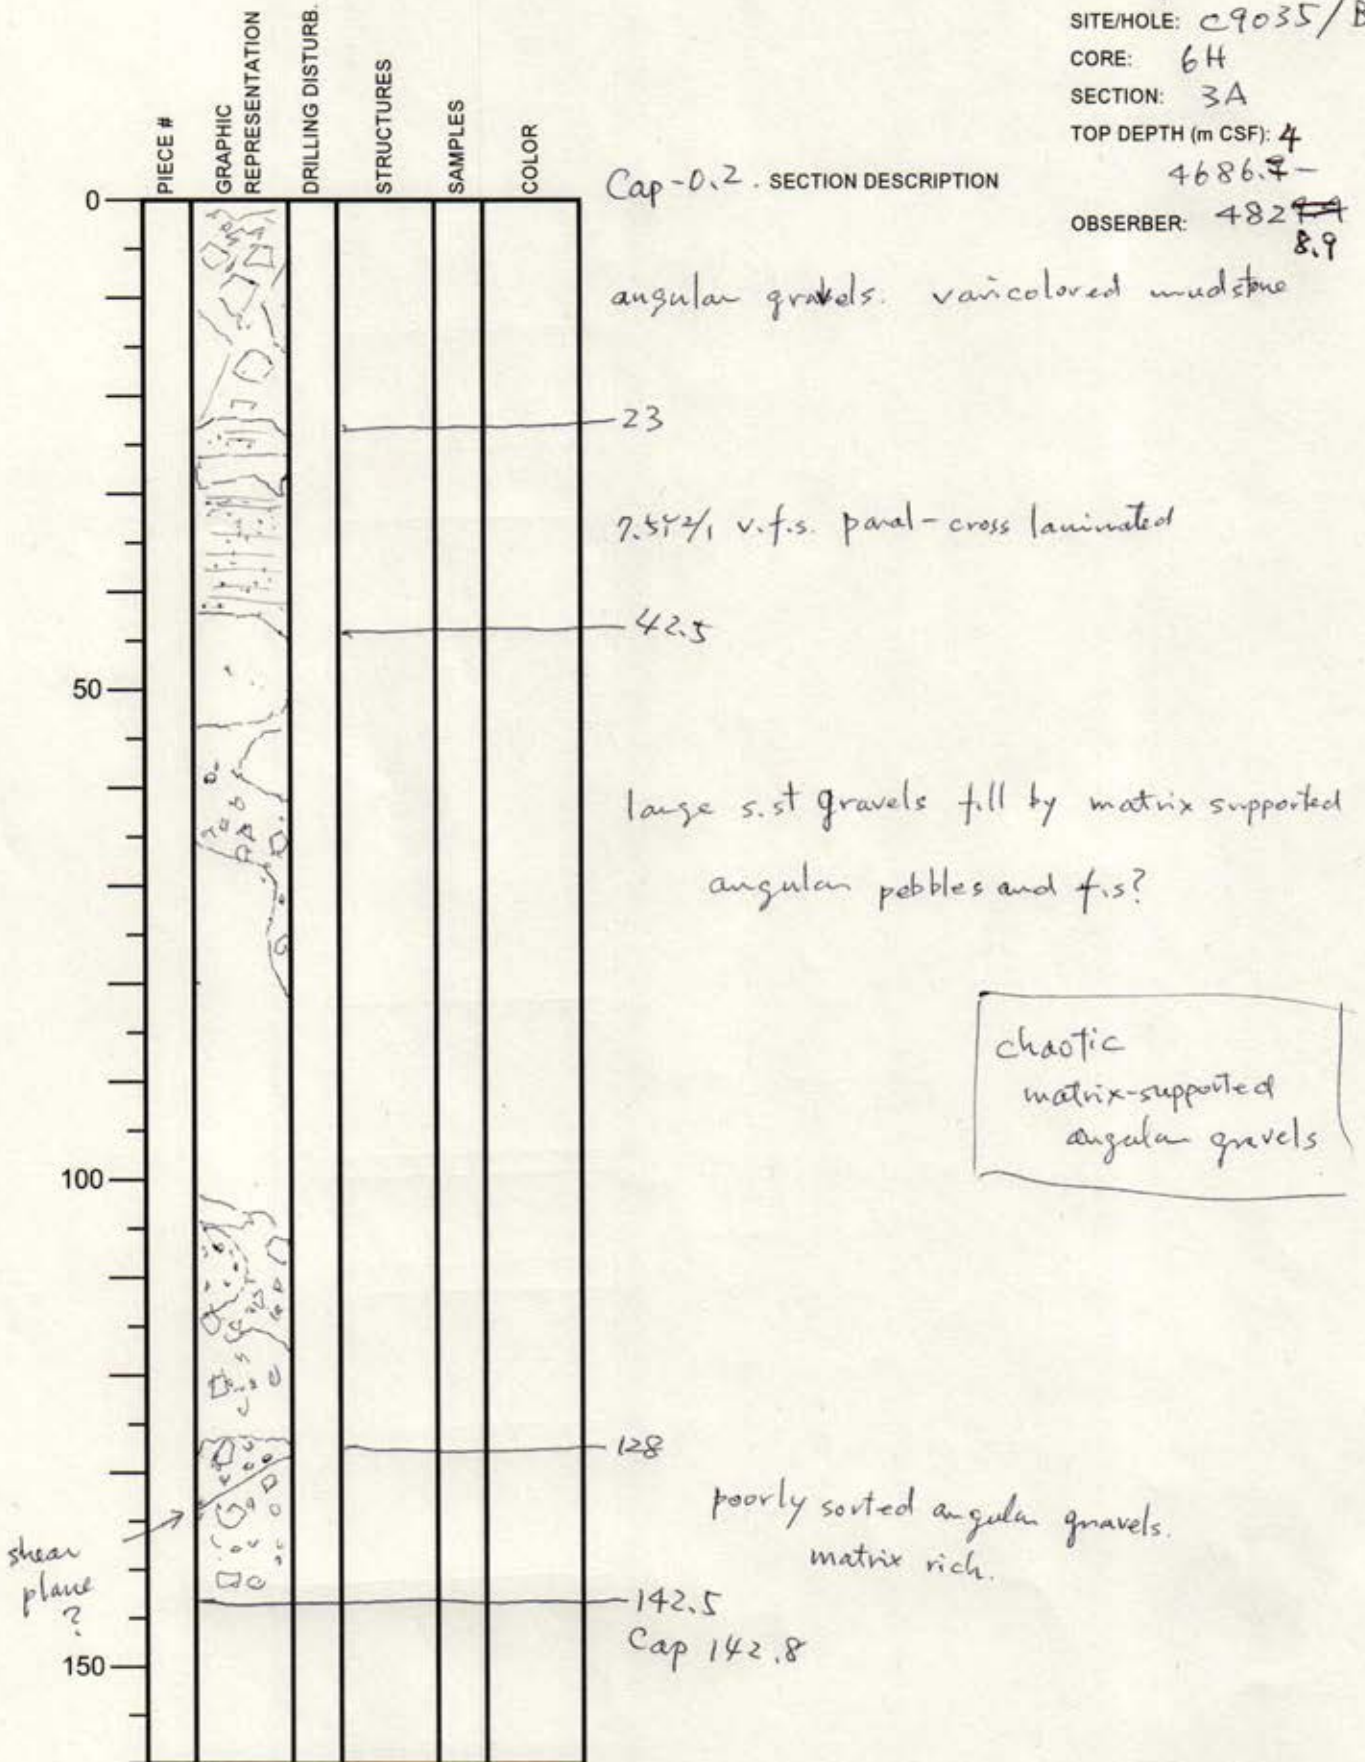 SITE/HOLE: C9035/B
CORE: 6H
SECTION: 3A
TOP DEPTH (m CSF): 4
4686.7-
OBSERBER: 482
8.9
PIECE #
GRAPHIC
REPRESENTATION
DRILLING DISTURB.
STRUCTURES
SAMPLES
COLOR
Cap-0.2. SECTION DESCRIPTION
0
angular gravels. varicolored mudstone
23
7.5Y2/1 v.f.s. paral-cross laminated
42.5
50
large s.st gravels fill by matrix supported
angular pebbles and f.s?
chaotic
matrix-supported
angular gravels
100
128
poorly sorted angular gravels.
matrix rich.
shear
plane
?
142.5
Cap 142.8
150